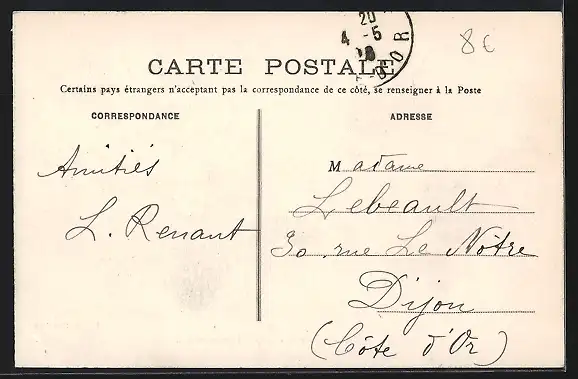 20
4 -5
D'OR
8€
CARTE POSTALE
Certains pays étrangers n'acceptant pas la correspondance de ce côté, se renseigner à la Poste
CORRESPONDANCE
Amitiés
L. Renaut
ADRESSE
Madame
Lebeault
30 rue Le Nôtre
Dijon
(Côte d'Or)